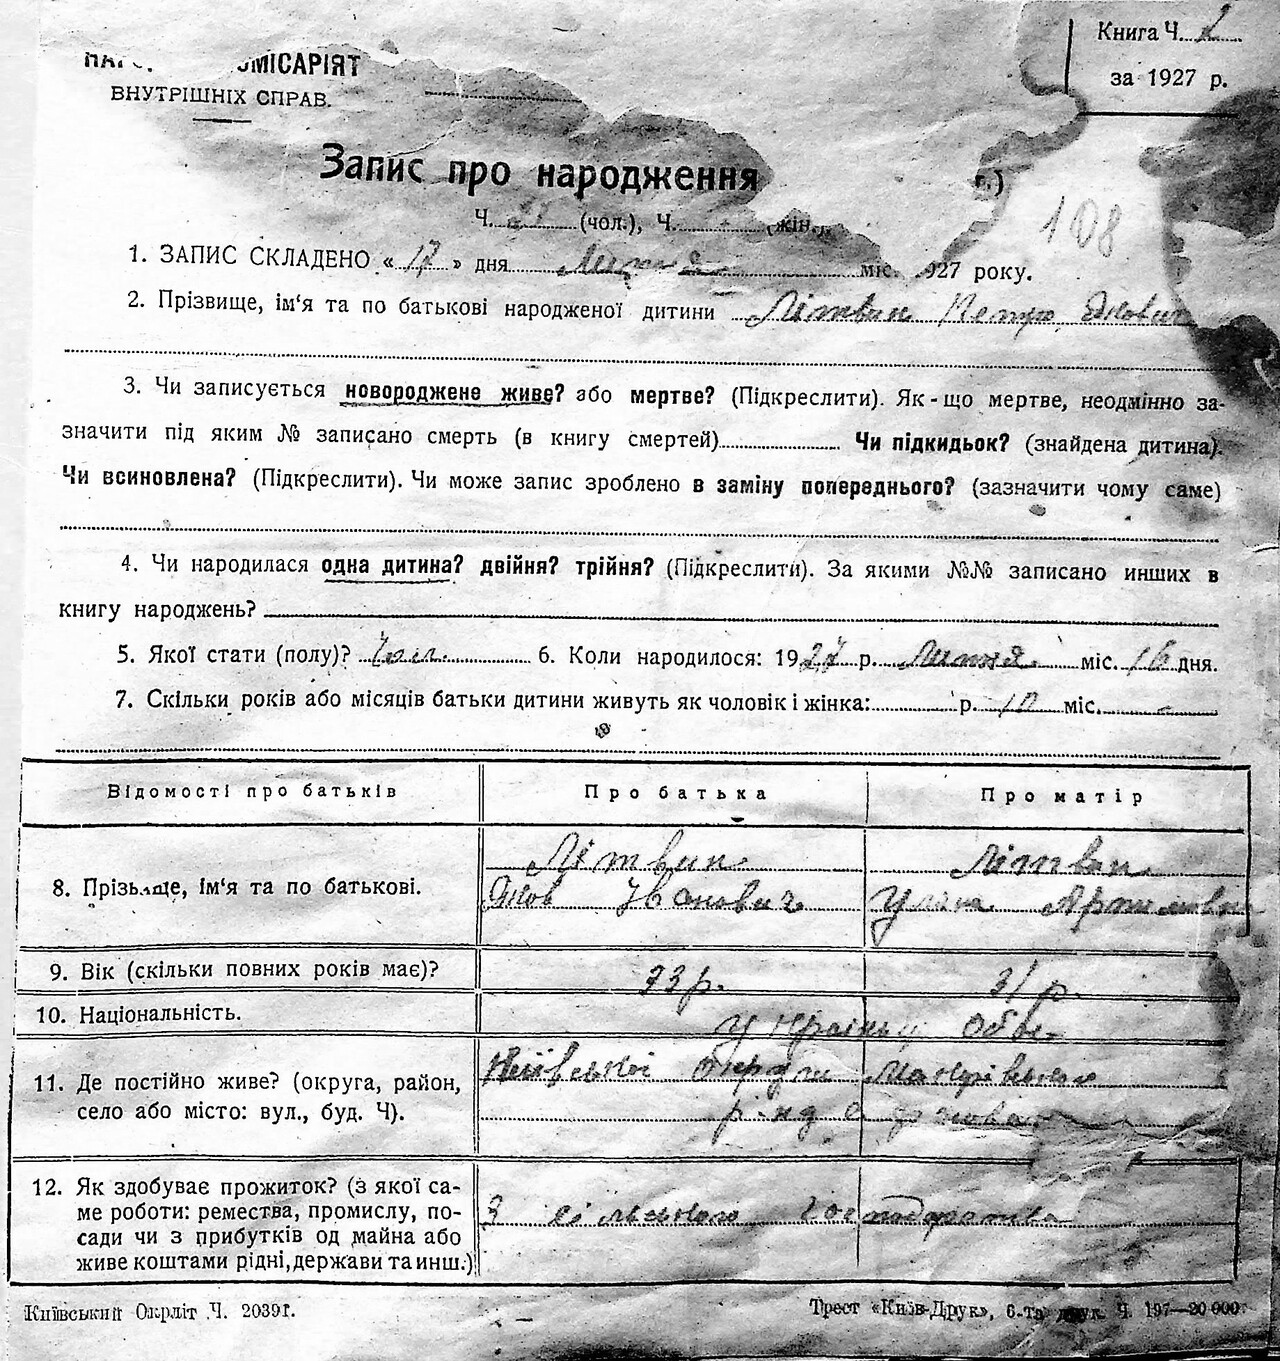 Книга Ч. 1
за 1927 р.
ОМІСАРІЯТ
ВНУТРІШНІХ СПРАВ.
Запис про народження
Ч. (чол.), Ч. (жін.)
108
1. ЗАПИС СКЛАДЕНО „ 17 " дня Липня міс. 1927 року.
2. Прізвище, ім'я та по батькові народженої дитини Літвин Петро Якович
3. Чи записується новороджене живе? або мертве? (Підкреслити). Як-що мертве, неодмінно за-
значити під яким № записано смерть (в книгу смертей) Чи підкидьок? (знайдена дитина).
Чи всиновлена? (Підкреслити). Чи може запис зроблено в заміну попереднього? (зазначити чому саме)
4. Чи народилася одна дитина? двійня? трійня? (Підкреслити). За якими №№ записано инших в
книгу народжень?
5. Якої стати (полу)? Чол. 6. Коли народилося: 1927 р. Липня міс. 16 дня.
7. Скільки років або місяців батьки дитини живуть як чоловік і жінка: р. 10 міс. -
Відомості про батьків Про батька Про матір
Літвин Літвин
8. Прізвище, ім'я та по батькові. Яков Іванович Уляна Артимовна
9. Вік (скільки повних років має)? 33 р. 31 р.
10. Національність. Українці обоє
11. Де постійно живе? (округа, район, Київської округи Макарівського
село або місто: вул., буд. Ч).
12. Як здобуває прожиток? (з якої са-
ме роботи: ремества, промислу, по- З сільського господарства
сади чи з прибутків од майна або
живе коштами рідні, держави та инш.)
Київський Окрліт Ч. 2039г. Трест «Київ-Друк», 6-та друк. Ч. 197—20 000